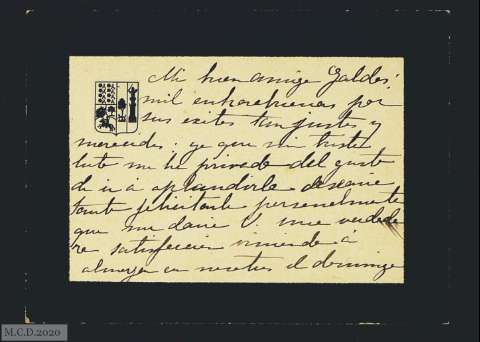 Mi buen amigo Galdos:
mil enhorabuenas por
sus exitos tan justos y
merecidos: ya que mi triste
luto me ha privado del gusto
de ir á aplaudirle desearia
tanto felicitarle personalmente
que me daria V. una verdade
ra satisfaccion viniendo á
almorzar con nosotros el domingo
M.C.D.2020